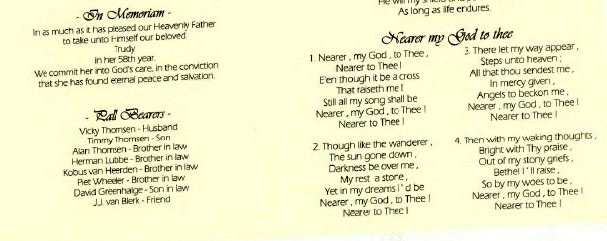 - In Memoriam -
In as much as it has pleased our Heavenly Father
to take unto Himself our beloved
Trudy
in her 58th year.
We commit her into God's care, in the conviction
that she has found eternal peace and salvation.
- Pall Bearers -
Vicky Thomsen - Husband
Timmy Thomsen - Son
Alan Thomsen - Brother in law
Herman Lubbe - Brother in law
Kobus van Heerden - Brother in law
Piet Wheeler - Brother in law
David Greenhalge - Son in law
J.J. van Blerk - Friend
As long as life endures.
Nearer my God to thee
1. Nearer , my God , to Thee ,
Nearer to Thee !
E'en though it be a cross
That raiseth me !
Still all my song shall be
Nearer , my God , to Thee !
Nearer to Thee !
2. Though like the wanderer ,
The sun gone down ,
Darkness be over me ,
My rest a stone ,
Yet in my dreams I ' d be
Nearer , my God , to Thee !
Nearer to Thee !
3. There let my way appear ,
Steps unto heaven ;
All that thou sendest me ,
In mercy given ,
Angels to beckon me ,
Nearer , my God , to Thee !
Nearer to Thee !
4. Then with my waking thoughts ,
Bright with Thy praise ,
Out of my stony griefs ,
Bethel I ' ll raise ,
So by my woes to be ,
Nearer , my God , to Thee !
Nearer to Thee !